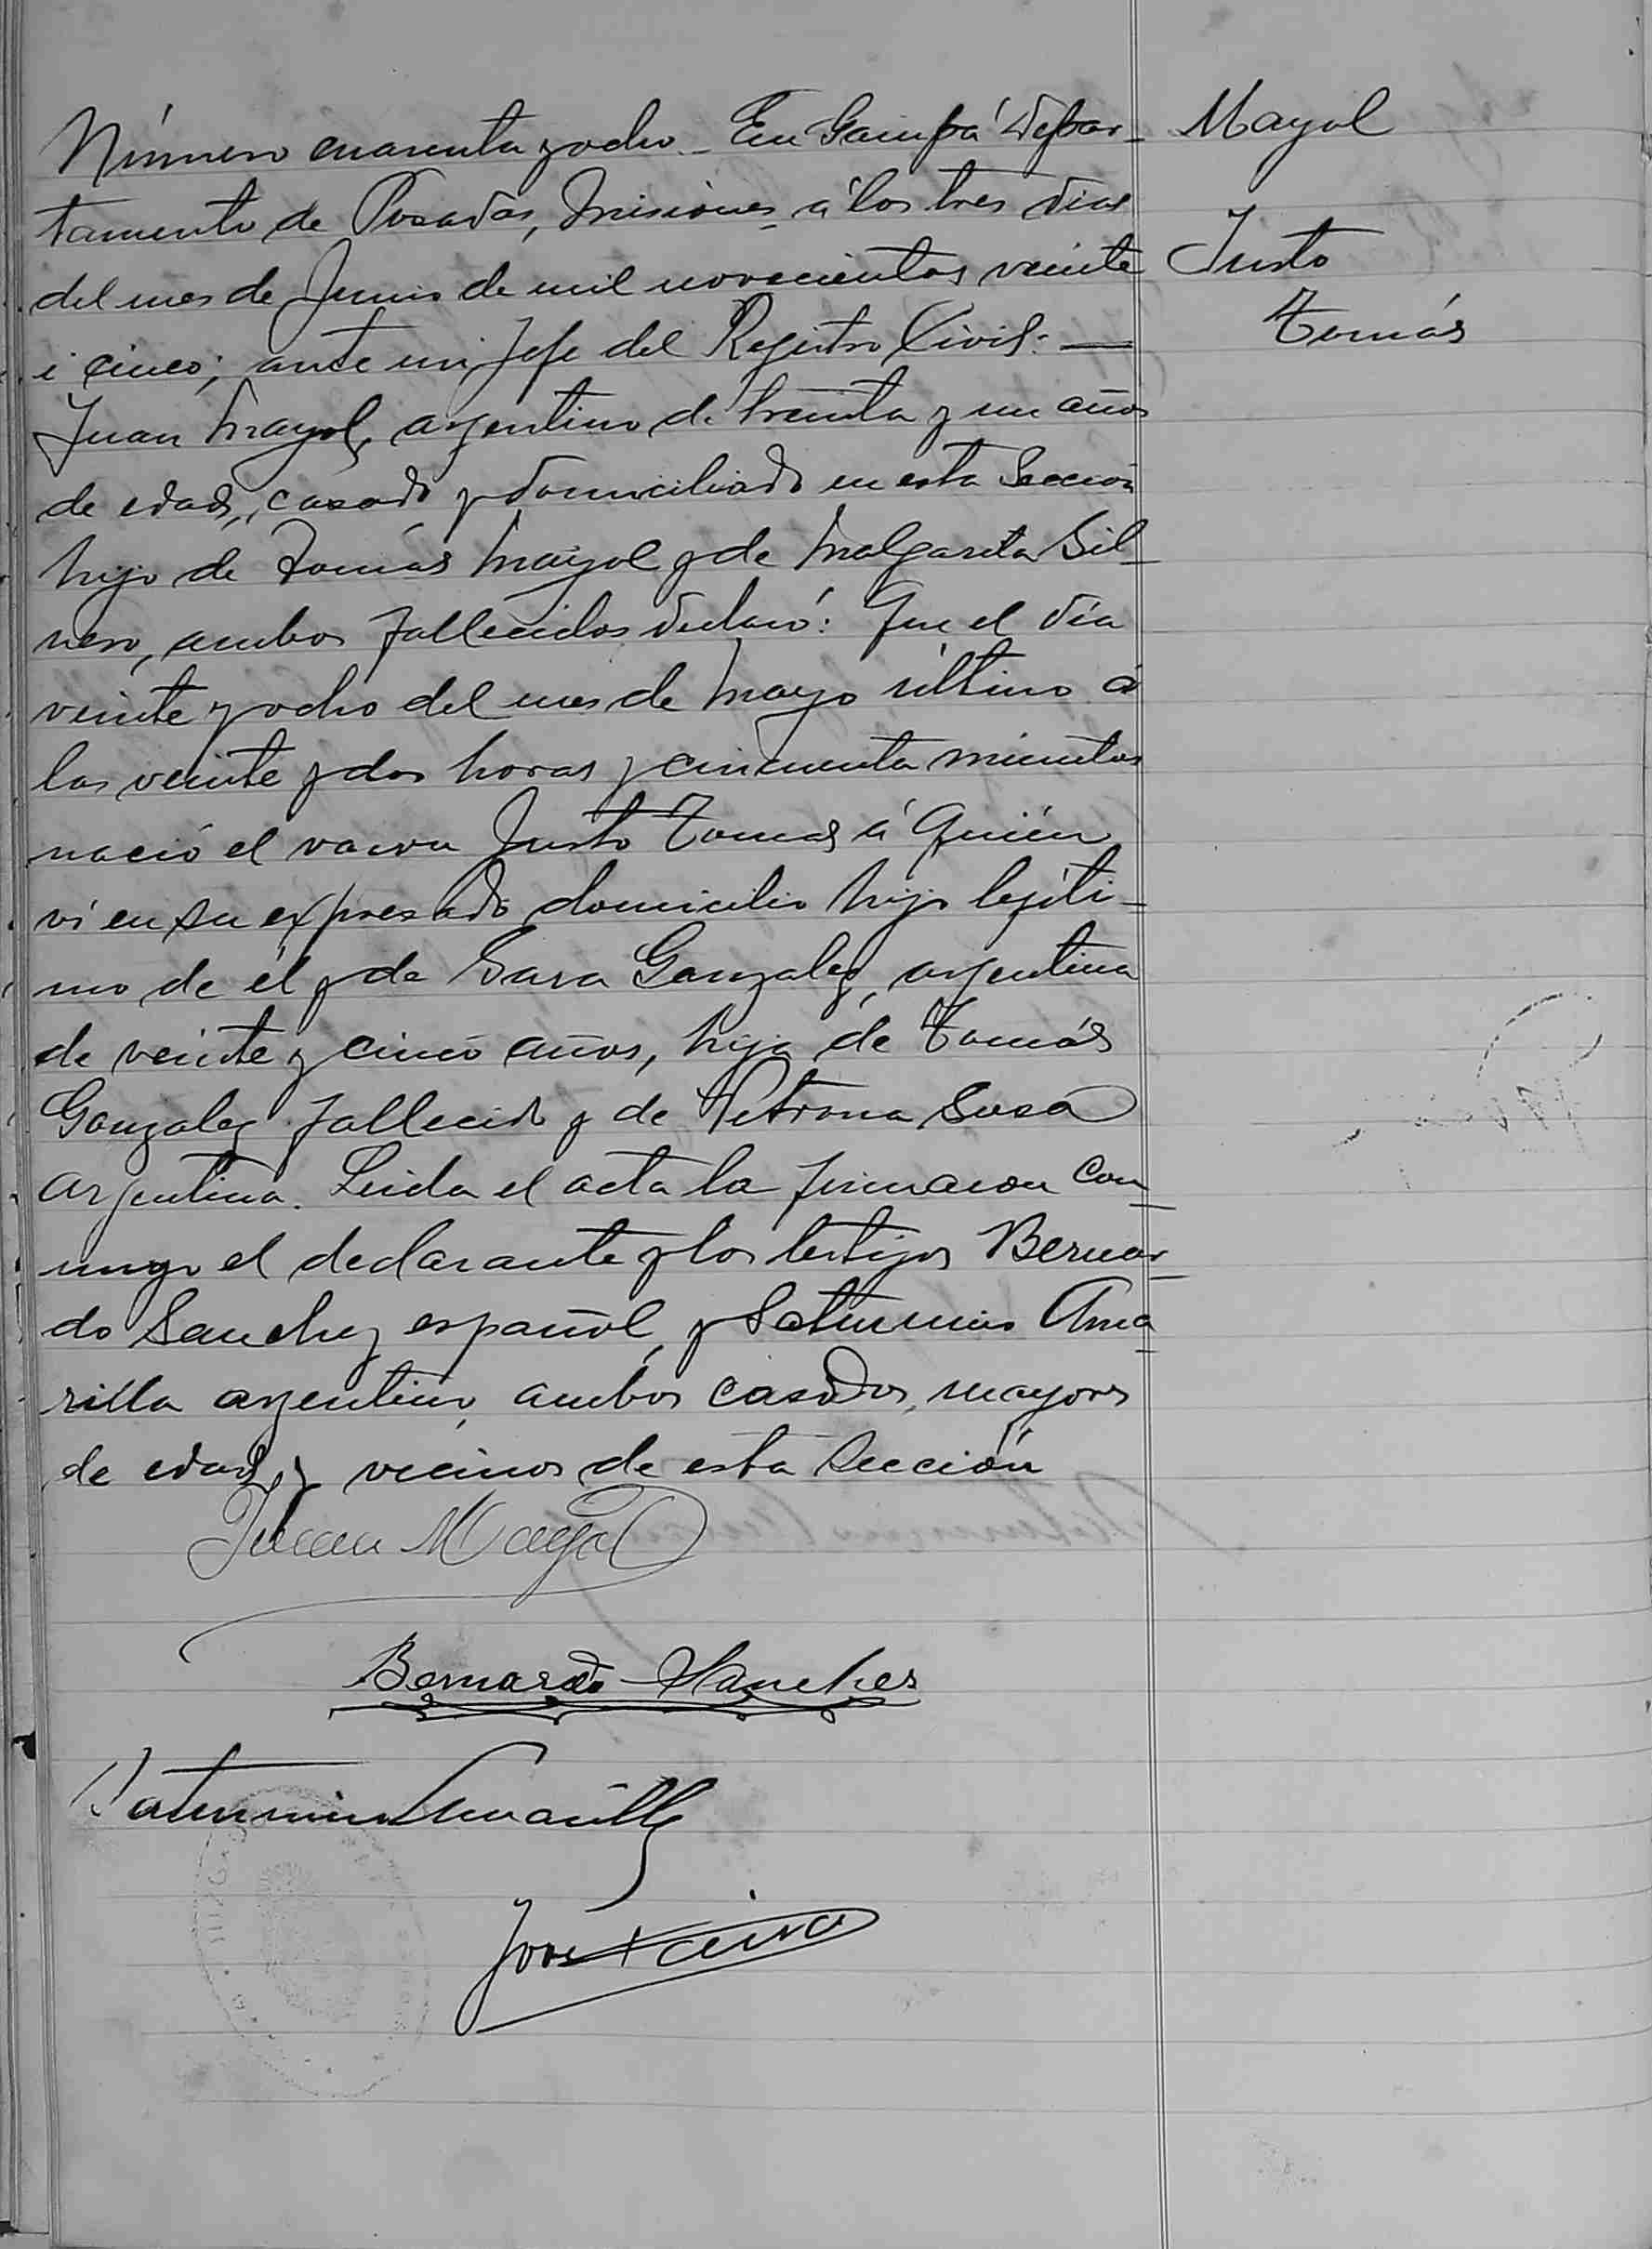 Mayol
Justo
Tomás
Número cuarenta y ocho. En Garupá Depar-
tamento de Posadas, Misiones á los tres dias
del mes de Junio de mil novecientos veinte
i cinco; ante mi Jefe del Registro Civil: —
Juan Mayol, argentino de treinta y un años
de edad, casado y domiciliado en esta Sección
hijo de Tomás Mayol y de Malgarita Sil-
vero, ambos fallecidos declaró: Que el día
veinte y ocho del mes de Mayo último á
las veinte y dos horas y cincuenta minutos
nació el varon Justo Tomas á quién
ví en su expresado domicilio hijo legíti-
mo de él y de Sara Gonzalez, argentina
de veinte y cinco años, hija de Tomás
Gonzalez fallecido y de Petrona Sosa
argentina. Leida el acta la firmaron con-
migo el declarante y los testigos Bernar-
do Sanchez español, y Saturnino Ama-
rilla argentino, ambos casados, mayores
de edad y vecinos de esta Sección
Juan Mayol
Bernardo Sanches
Saturnino Amarilla
José